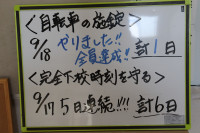 <自転車の施錠>
9/18 やりました!! 全員達成!! 計1日
<完全下校時刻を守る>
9/17 5日連続!!!! 計6日